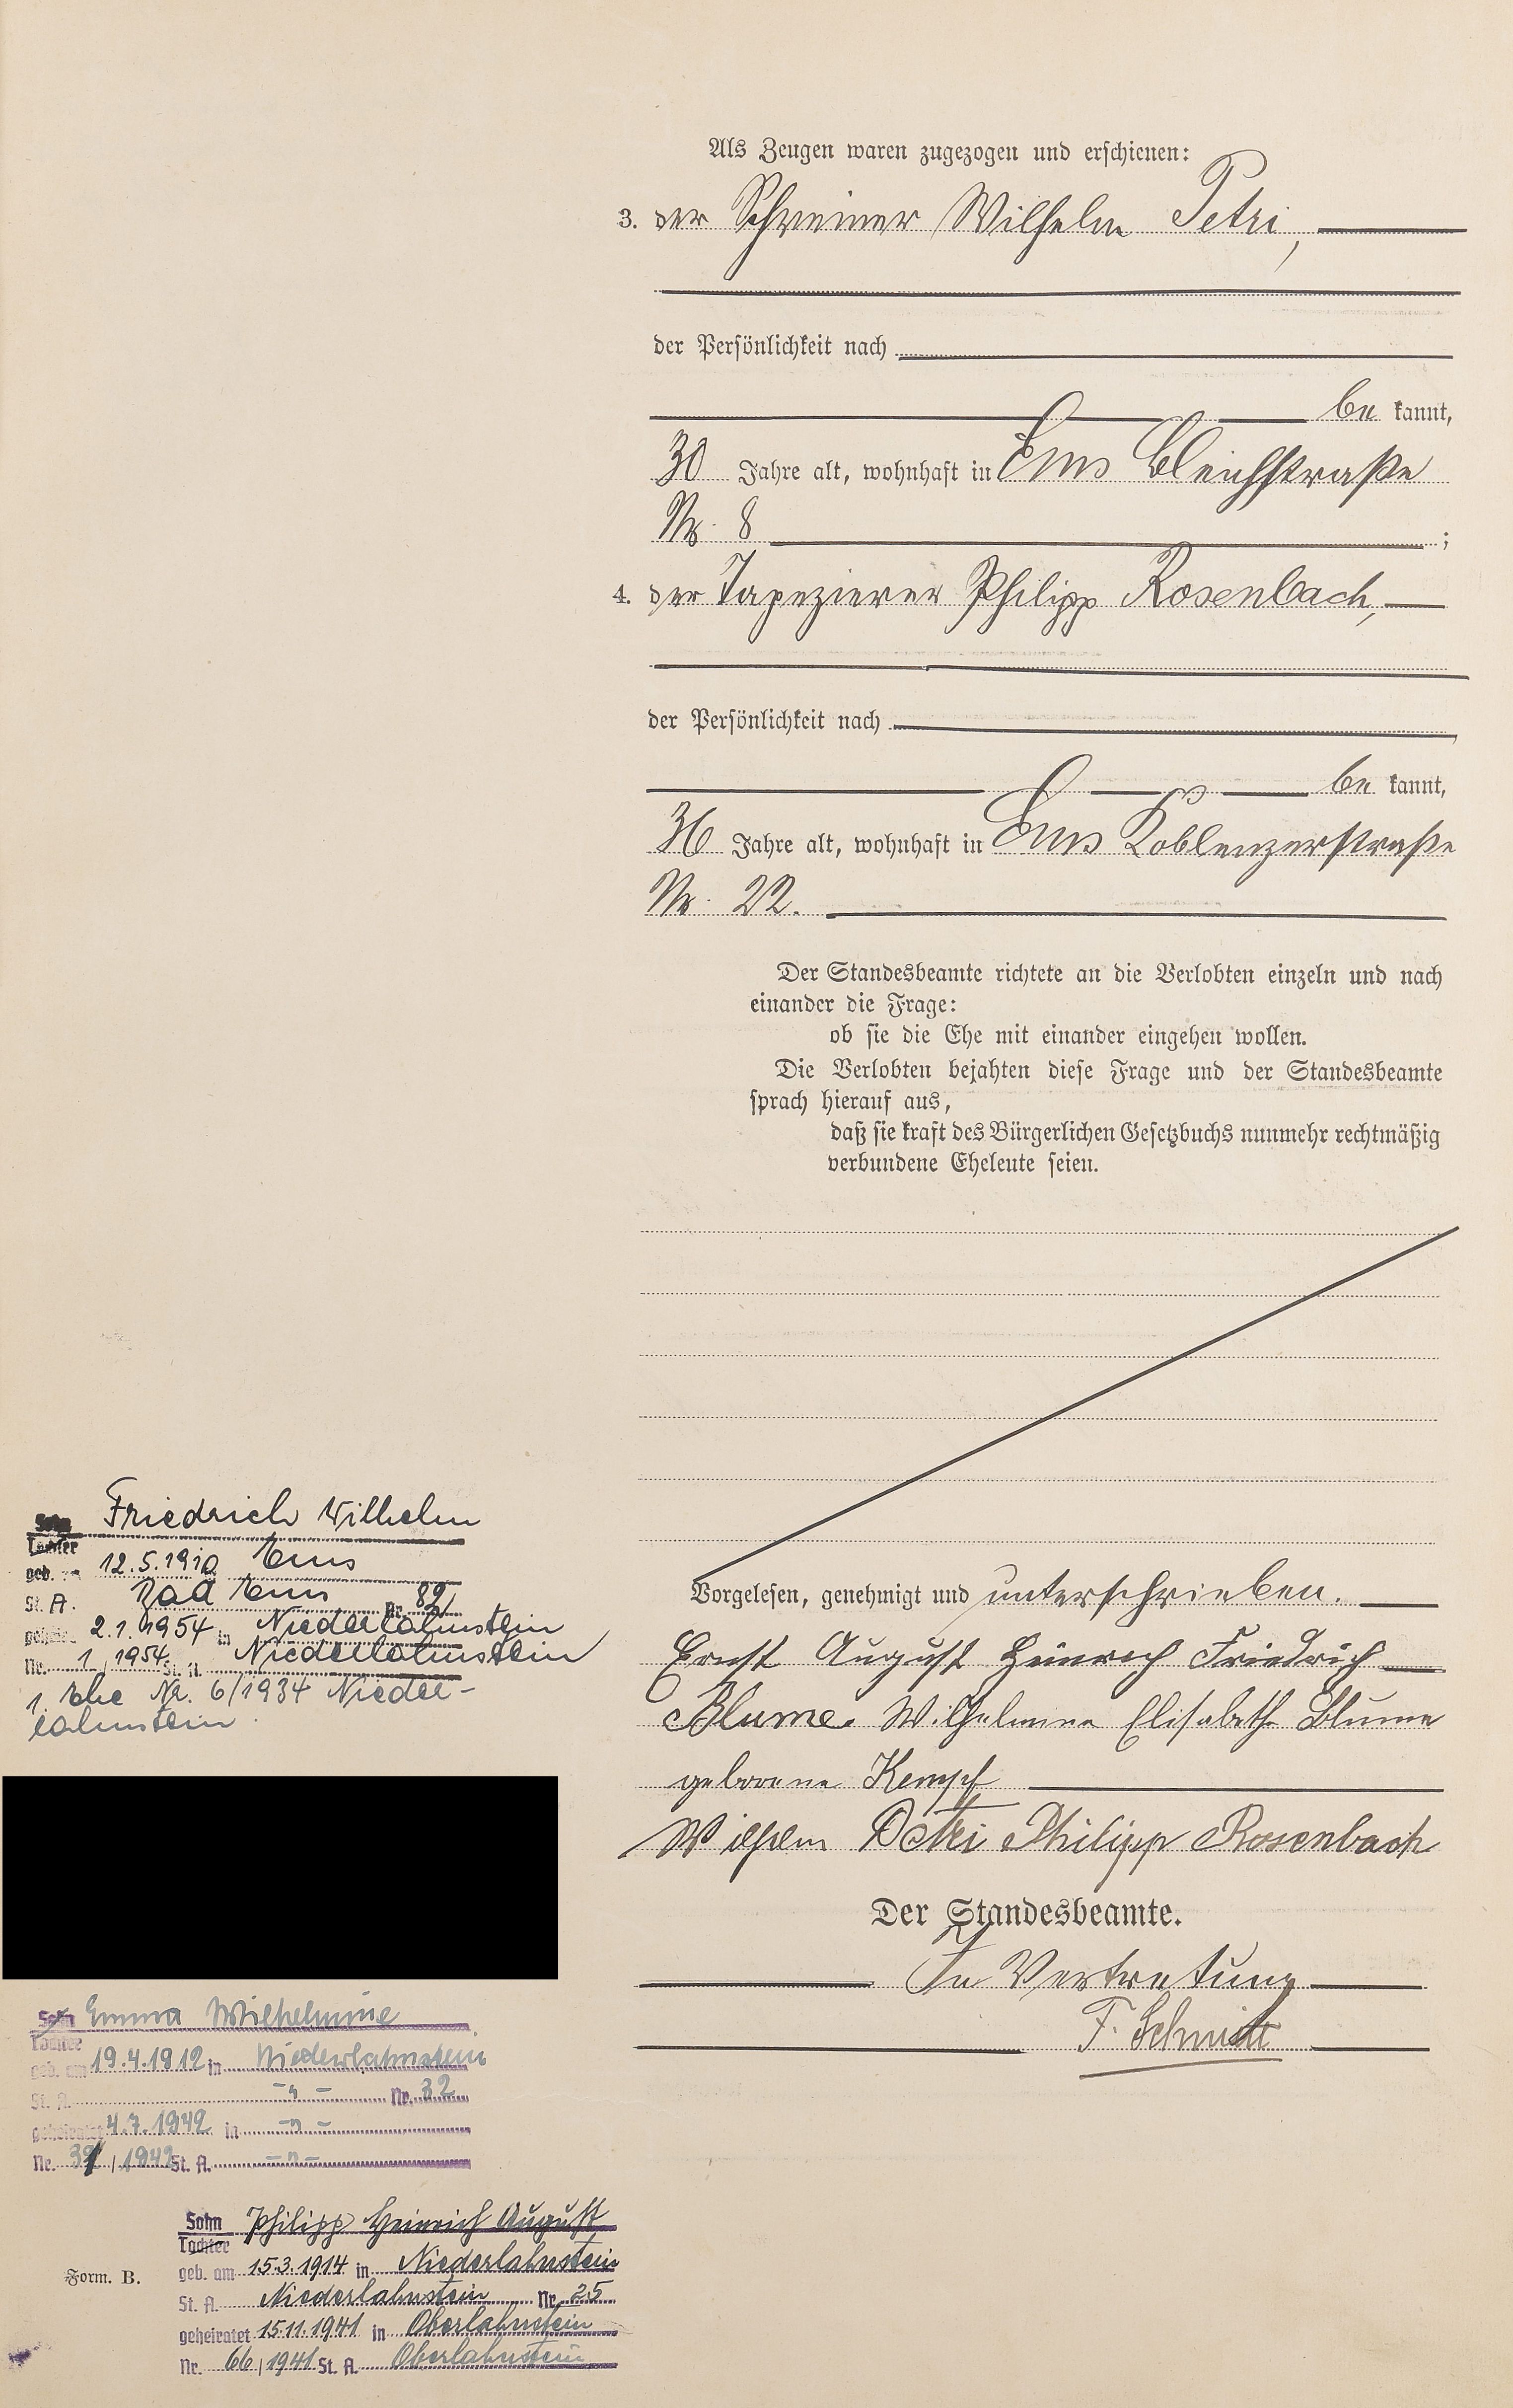 Als Zeugen waren zugezogen und erschienen:
3. der Schreiner Wilhelm Petri,
der Persönlichkeit nach
be kannt,
30 Jahre alt, wohnhaft in Ems Bleichstraße
Nr. 8 ;
4. der Tapezierer Philipp Rosenbach,
der Persönlichkeit nach
be kannt,
36 Jahre alt, wohnhaft in Ems Koblenzerstraße
Nr. 22.
Der Standesbeamte richtete an die Verlobten einzeln und nach
einander die Frage:
ob sie die Ehe mit einander eingehen wollen.
Die Verlobten bejahten diese Frage und der Standesbeamte
sprach hierauf aus,
daß sie kraft des Bürgerlichen Gesetzbuchs nunmehr rechtmäßig
verbundene Eheleute seien.
Vorgelesen, genehmigt und unterschrieben.
Ernst August Heinrich Friedrich
Blume. Wilhelmine Elisabeth Blume
geborene Kempf
Wilhelm Petri Philipp Rosenbach
Der Standesbeamte.
In Vertretung
F. Schmitt
Sohn Friedrich Wilhelm
Tochter
geb. am 12.5.1910 Ems
St. A. Bad Ems Nr. 82
geheir. 2.1.1954 in Niederlahnstein
Nr. 1/1954 St. A. Niederlahnstein
1. Ehe Nr. 6/1934 Nieder-
lahnstein.
Sohn Emma Wilhelmine
Tochter
geb. am 19.4.1912 in Niederlahnstein
St. A. -"- Nr. 32
geheiratet 4.7.1942 in -"-
Nr. 31/1942 St. A. -"-
Sohn Philipp Heinrich August
Tochter
geb. am 15.3.1914 in Niederlahnstein
St. A. Niederlahnstein Nr. 25
geheiratet 15.11.1941 in Oberlahnstein
Nr. 66/1941 St. A. Oberlahnstein
Form. B.